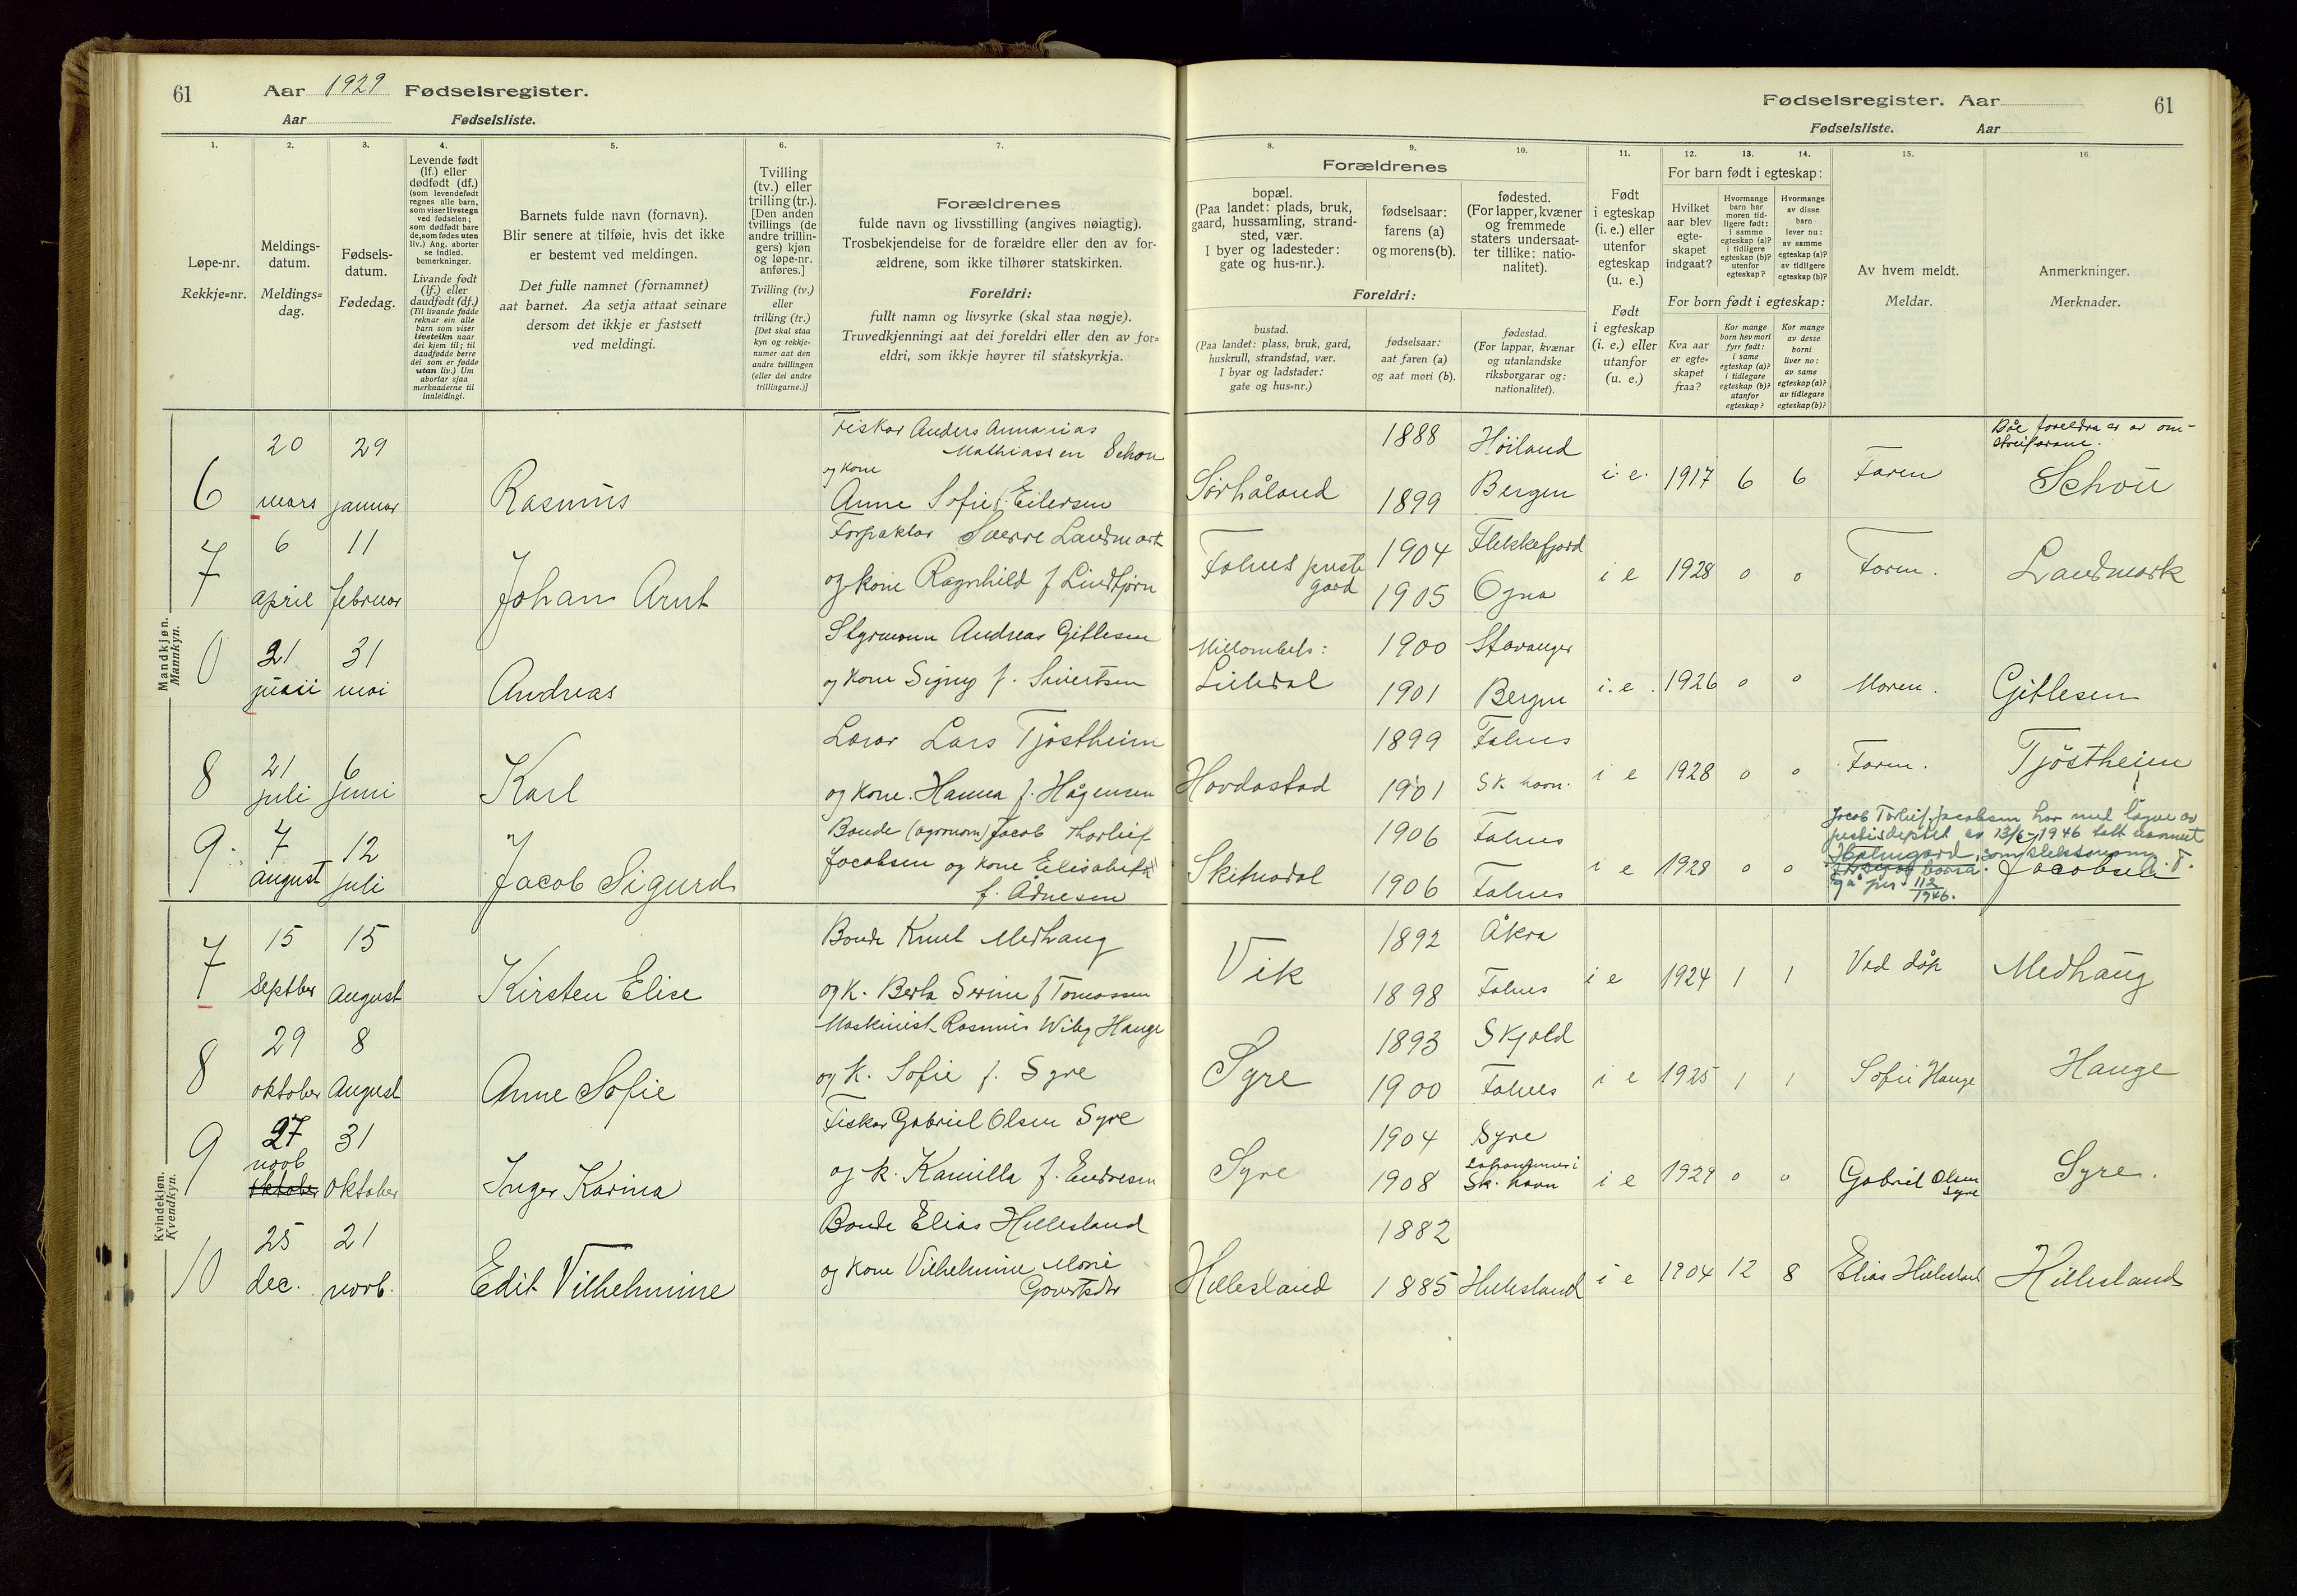 61 Aar 1929 Fødselsregister.
Aar Fødselsliste.
Fødselsregister. Aar 61
Fødselsliste. Aar
1. 2. 3. 4. 5. 6. 7. 8. 9. 10. 11. 12. 13. 14. 15. 16.
Løpe-nr.
Rekkje=nr.
Meldings-
datum.
Meldings=
dag.
Fødsels-
datum.
Fødedag.
Levende født
(lf.) eller
dødfødt (df.)
(som levendefødt
regnes alle barn,
som viser livstegn
ved fødselen;
som dødfødt bare
de, som fødes uten
liv.) Ang. aborter
se indled.
bemerkninger.
Livande født
(lf.) eller
daudfødt (df.)
(Til livande fødde
reknar ein alle
barn som viser
livsteikn naar
dei kjem til; til
daudfødde berre
dei som er fødde
utan liv.) Um
abortar sjaa
merknaderne til
innleidingi.
Barnets fulde navn (fornavn).
Blir senere at tilføie, hvis det ikke
er bestemt ved meldingen.
Det fulle namnet (fornamnet)
aat barnet. Aa setja attaat seinare
dersom det ikkje er fastsett
ved meldingi.
Tvilling
(tv.) eller
trilling (tr.).
[Den anden
tvillings (de
andre trillin-
gers) kjøn
og løpe-nr.
anføres.]
Tvilling (tv.)
eller
trilling (tr.)
[Det skal staa
kyn og rekkje-
numer aat den
andre tvillingen
(eller dei andre
trillingarne.)]
Forældrenes
fulde navn og livsstilling (angives nøiagtig).
Trosbekjendelse for de forældre eller den av for-
ældrene, som ikke tilhører statskirken.
Foreldri:
fullt namn og livsyrke (skal staa nøgje).
Truvedkjenningi aat dei foreldri eller den av for=
eldri, som ikkje høyrer til statskyrkja.
Forældrenes
bopæl.
(Paa landet: plads, bruk,
gaard, hussamling, strand-
sted, vær.
I byer og ladesteder:
gate og hus-nr.).
fødselsaar:
farens (a)
og morens (b).
fødested.
(For lapper, kvæner
og fremmede
staters undersaat-
ter tillike: natio-
nalitet).
Foreldri:
bustad.
(Paa landet: plass, bruk, gard,
huskrull, strandstad, vær.
I byar og ladstader:
gate og hus=nr.)
fødselsaar:
aat faren (a)
og aat mori (b).
fødestad.
(For lappar, kvænar
og utanlandske
riksborgarar og:
nationalitet).
Født
i egteskap
(i. e.) eller
utenfor
egteskap
(u. e.)
Født
i egteskap
(i. e.) eller
utanfor
(u. e.)
For barn født i egteskap:
Hvilket
aar blev
egte-
skapet
indgaat?
Hvormange
barn har
moren tid-
ligere født:
i samme
egteskap (a)?
i tidligere
egteskap (b)?
utenfor
egteskap?
Hvormange
av disse
barn
lever nu:
av samme
egteskap (a)?
av tidligere
egteskap (b)?
For born født i egteskap:
Kva aar
er egte=
skapet
fraa?
Kor mange
born hev mori
fyrr født:
i same
egteskap (a)?
i tidlegare
egteskap (b)?
utanfor
egteskap?
Kor mange
av desse
borni
liver no:
av same
egteskap (a)?
av tidlegare
egteskap (b)?
Av hvem meldt.
Meldar.
Anmerkninger.
Merknader.
Mandkjøn.
Mannkyn.
6 20 mars 29 januar Rasmus
Fiskar Anders Annanias
Mathiassen Schou
og kone
Anne Sofie f. Eilersen
Sørhåland 1888 Høiland 1899 Bergen i. e. 1917 6 6 Faren
Båe foreldra er av om-
streifarane.
Schou
7 6 april 11 februar Johan Arnt
Forpaktar Sverre Landmark
og kone Ragnhild f Lindtjørn
Falnes preste
gard 1904 Flekkefjord 1905 Ogna i e 1928 0 0 Faren. Landmark
0 21 juni 31 mai Andreas
Styrmann Andreas Gitlesen
og kone Signy f. Sivertsen
Millombels: 1900 Stavanger 1901 Bergen i. e. 1926 0 0 Moren. Gitlesen
8 21 juli 6 juni Karl
Lærar Lars Tjøstheim
og kone. Hanna f. Hågensen
Hordastad 1899 Falnes 1901 Sk. havn. i e 1928 0 0 Faren. Tjøstheim
9. 7 august 12 juli Jacob Sigurd
Bonde (agronom) Jacob Thorleif
Jacobsen og kone Elisabeth
f. Ådnesen
Skitnadal 1906 Falnes 1906 Falnes i e 1928 0 0
Jacob Torleif Jacobsen har med løyve av
justisdeptet av 13/6-1946 tatt namnet
Holmgard, som slektsnamn
112
1946.
Jacobsen
Kvindekjøn.
Kvendkyn.
7 15 septber 15 august Kirsten Elise
Bonde Knut Medhaug
og k. Berta Serine f Tomassen
Vik 1892 Åkra 1898 Falnes i e 1924 1 1 Ved dåp Medhaug
8 29 oktober 8 August Anne Sofie
Maskinist Rasmus Wiby Hauge
og k. Sofie f. Syre
Syre 1893 Skjold 1900 Falnes i e 1925 1 1 Sofie Hauge Hauge
9 27 novb oktober 31 oktober Inger Karina
Fiskar Gabriel Olsen Syre
og k. Kamilla f. Endresen
Syre 1904 Syre 1908 Sk. havn i e 1929 0 0 Gabriel Olsen
Syre Syre.
10 25 dec. 21 novb. Edit Vilhelmine
Bonde Elias Hillesland
og kone Vilhelmine Marie
Govertsdtr
Hillesland 1882 1885 Hillesland i e 1904 12 8 Elias Hillesland Hillesland